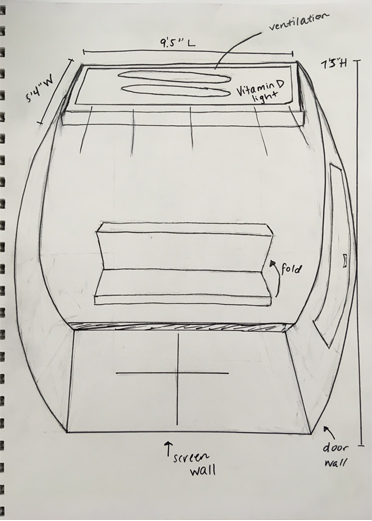 ventilation
9'.5" L
5'4" W
7'5" H
Vitamin D
light
fold
screen
wall
door
wall